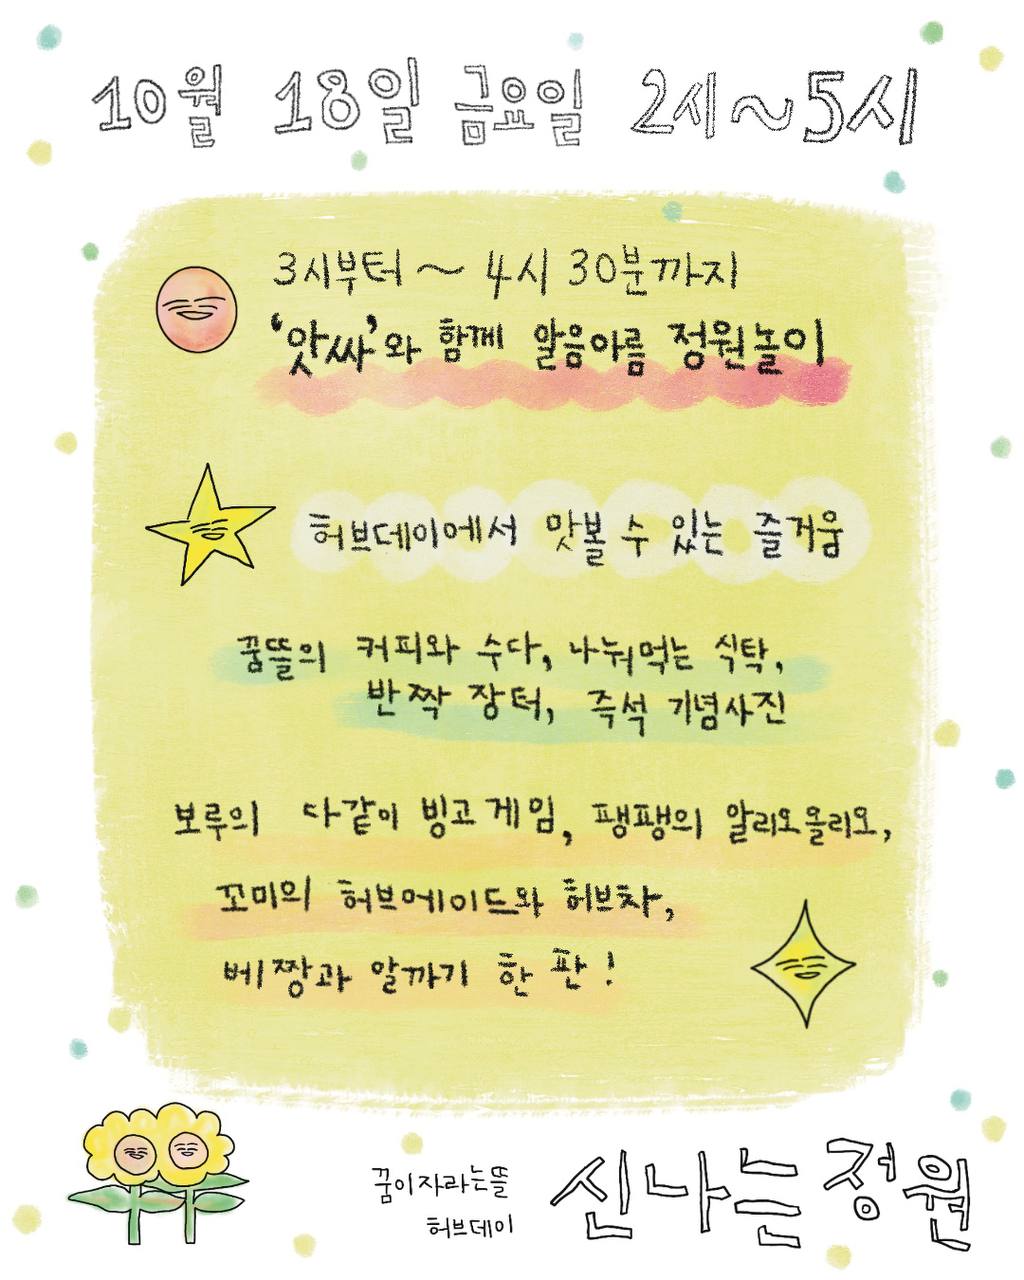 10월 18일 금요일 2시~5시
3시부터 ~ 4시 30분까지
'앗싸'와 함께 알음아름 정원놀이
허브데이에서 맛볼 수 있는 즐거움
꿈뜰의 커피와 수다, 나눠먹는 식탁,
반짝 장터, 즉석 기념사진
보루의 다같이 빙고게임, 팽팽의 알리오올리오,
꼬미의 허브메이드와 허브차,
베짱과 알까기 한 판!
꿈이자라는뜰
허브데이
신나는정원